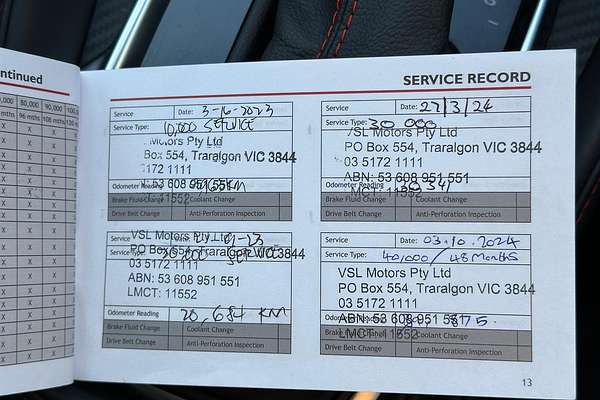 ntinued
SERVICE RECORD
,000 80,000 90,000 100,
mths 96 mths 108 mths 120
Service Date: 3-10-2023
Service Type: 10,000 SERVICE
Motors Pty Ltd
Box 554, Traralgon VIC 3844
5172 1111
ABN: 53 608 951 551
Odometer Reading KM
Brake Fluid Change Coolant Change
11552
Drive Belt Change Anti-Perforation Inspection
Service Date: 27/3/24
Service Type: 30 000
VSL Motors Pty Ltd
PO Box 554, Traralgon VIC 3844
03 5172 1111
ABN: 53 608 951 551
Odometer Reading 30 341
LMCT: 11552
Brake Fluid Change Coolant Change
Drive Belt Change Anti-Perforation Inspection
VSL Motors Pty Ltd
Service Date: -23
PO Box 554, Traralgon VIC 3844
Service Type: 20 000
03 5172 1111
ABN: 53 608 951 551
LMCT: 11552
Odometer Reading 20,684 KM
Brake Fluid Change Coolant Change
Drive Belt Change Anti-Perforation Inspection
Service Date: 03.10.2024
Service Type: 40,000 / 48 Months
VSL Motors Pty Ltd
PO Box 554, Traralgon VIC 3844
03 5172 1111
ABN: 53 608 951 551
Odometer Reading
LMCT: 11552
Brake Fluid Change Coolant Change
Drive Belt Change Anti-Perforation Inspection
13